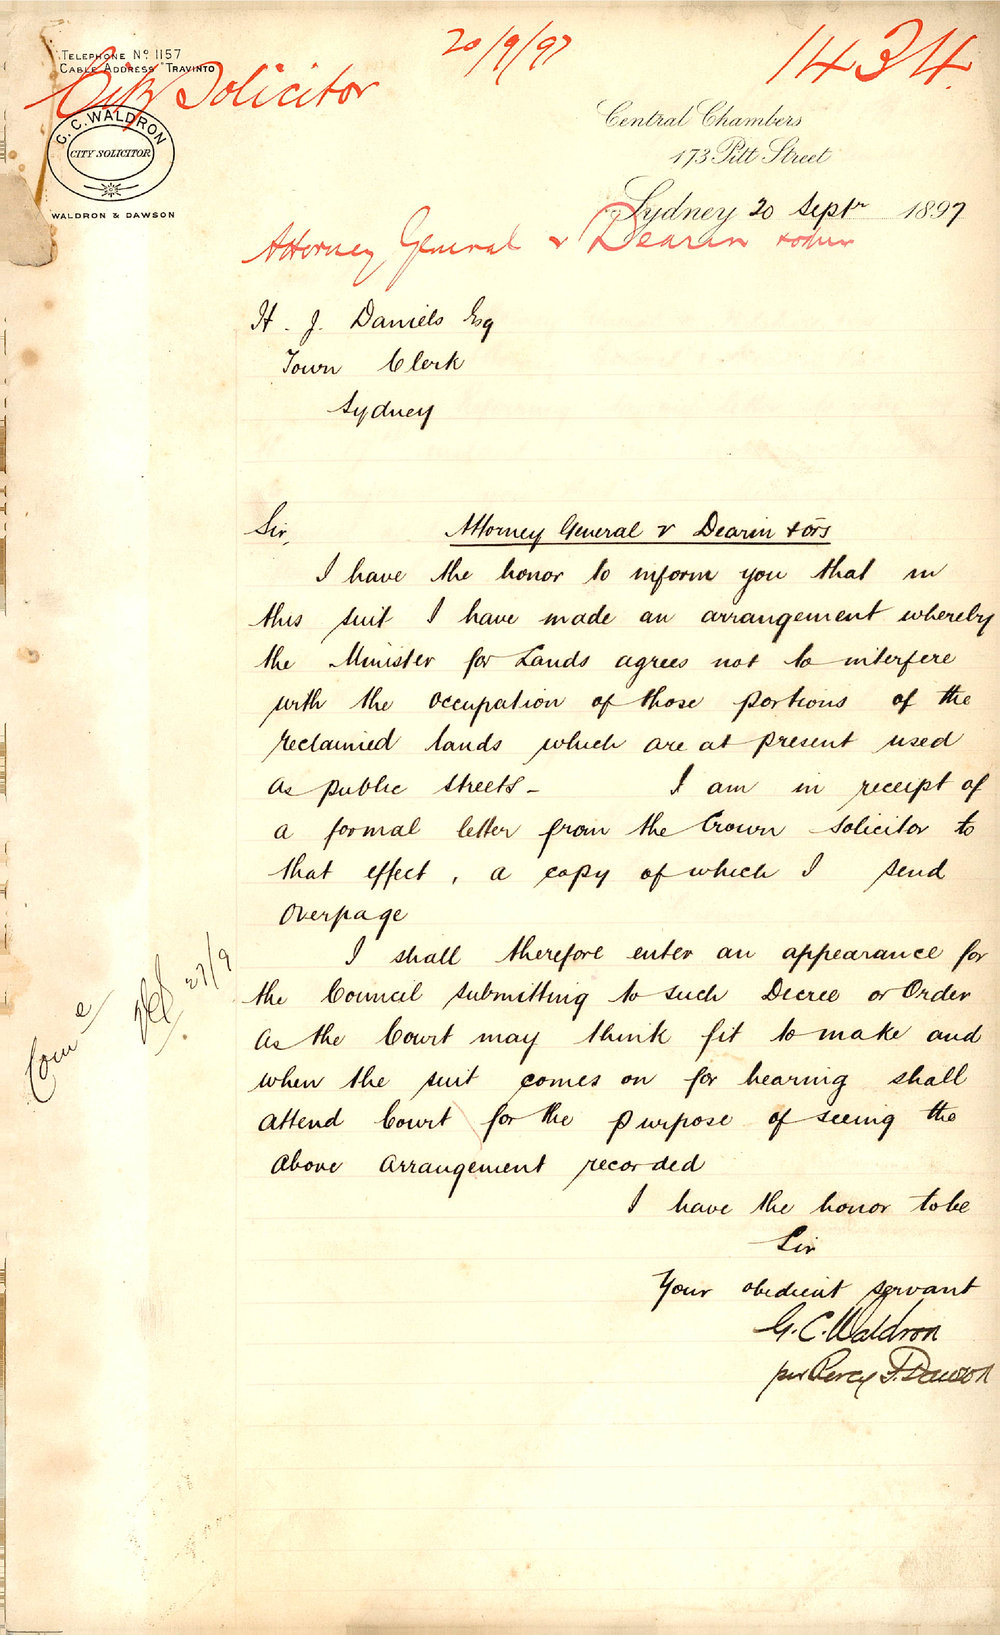 20/9/97
1434.
TELEPHONE Nº 1157
CABLE ADDRESS "TRAVINTO"
City Solicitor
G. C. WALDRON
CITY SOLICITOR
WALDRON & DAWSON
Central Chambers
173 Pitt Street
Sydney 20 Septr 1897
Attorney General v Dearin & others
H. J. Daniels Esq
Town Clerk
Sydney
Sir, Attorney General v Dearin & ors
I have the honor to inform you that in
this suit I have made an arrangement whereby
the Minister for Lands agrees not to interfere
with the occupation of those portions of the
reclaimed lands which are at present used
as public streets - I am in receipt of
a formal letter from the Crown Solicitor to
that effect, a copy of which I send
overpage
I shall therefore enter an appearance for
the Council submitting to such Decree or Order
as the Court may think fit to make and
when the suit comes on for hearing shall
attend Court for the purpose of seeing the
above arrangement recorded
I have the honor to be
Sir
Your obedient servant
G. C. Waldron
per Percy F. Dawson
Come
27/9